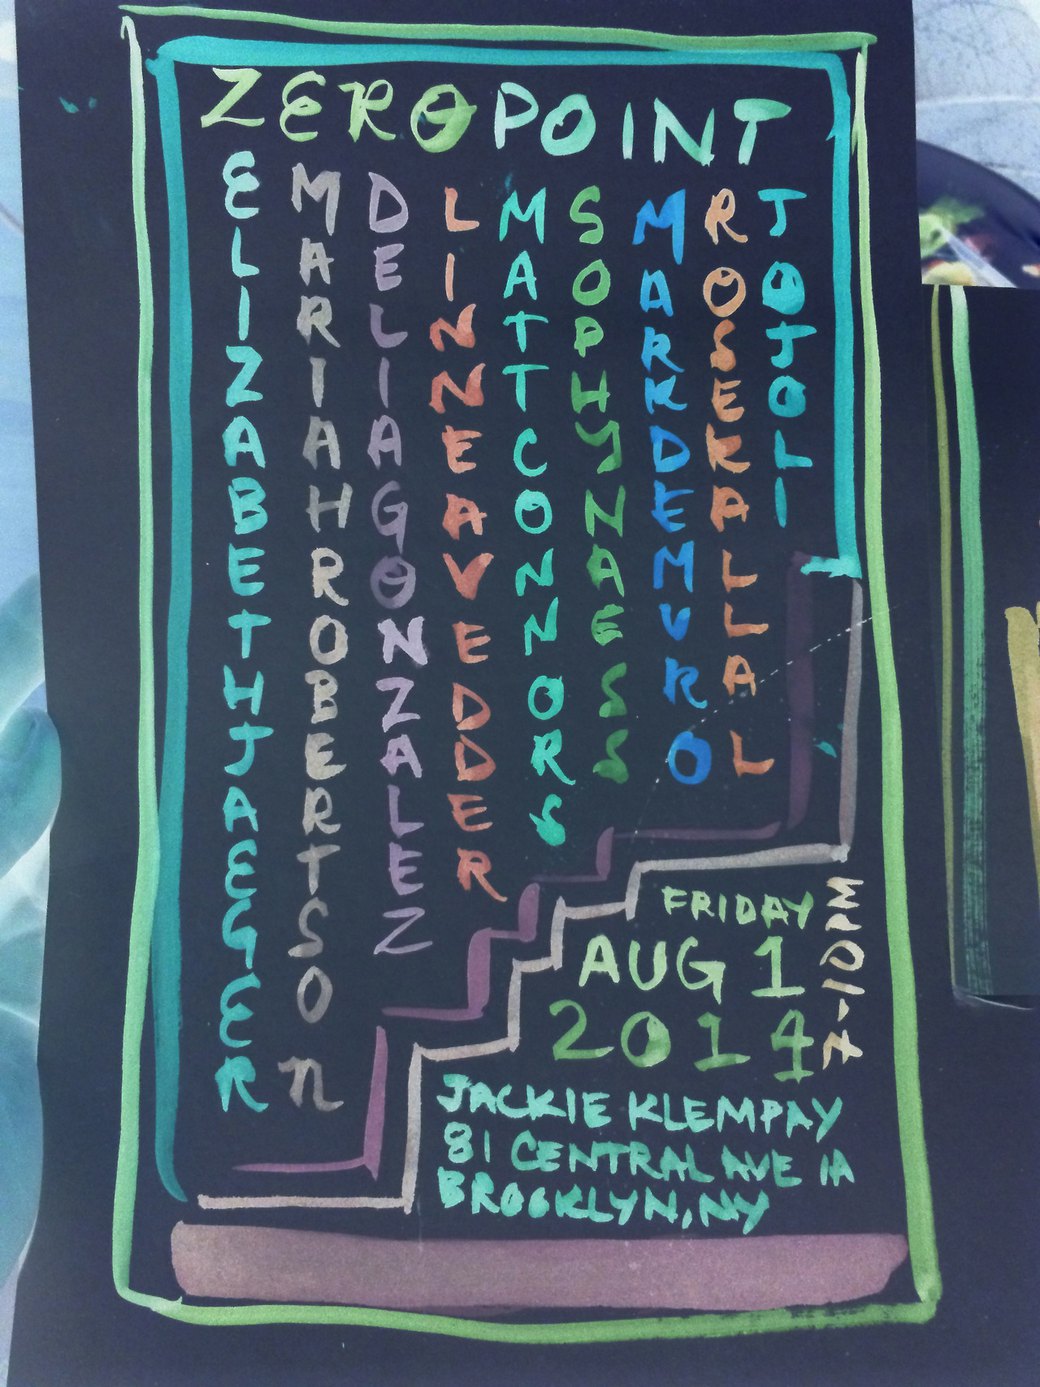 ZEROPOINT
ELIZABETHJAEGER
MARIAHROBERTSOn
DELIAGONZALEZ
LINNEAVEDDER
MATTCONNORS
SOPHYNAESS
MARKDEMURO
ROSEKALLAL
JOJOLI
FRIDAY
AUG 1
2014
7-10PM
JACKIE KLEMPAY
81 CENTRAL AVE 1A
BROOKLYN, NY